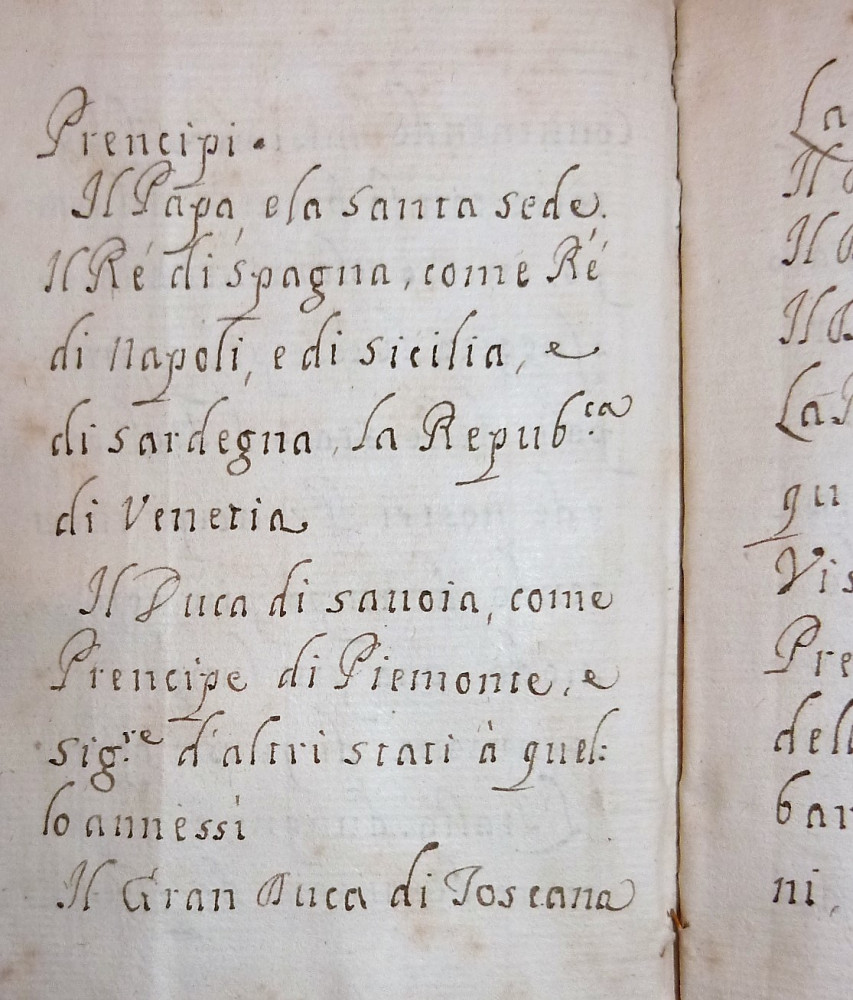 Prencipi.
Il Papa, e la santa sede.
Il Ré di spagna, come Ré
di Napoli, e di sicilia, e
di sardegna, la Repub.ca
di Venetia
Il Duca di sauoia, come
Prencipe di Piemonte, e
sig.re d'altri stati à quel:
lo annessi
Il Gran Duca di Toscana
La
Il
Il
Il
La
qu
Vis
Pre
dell
bar
ni,